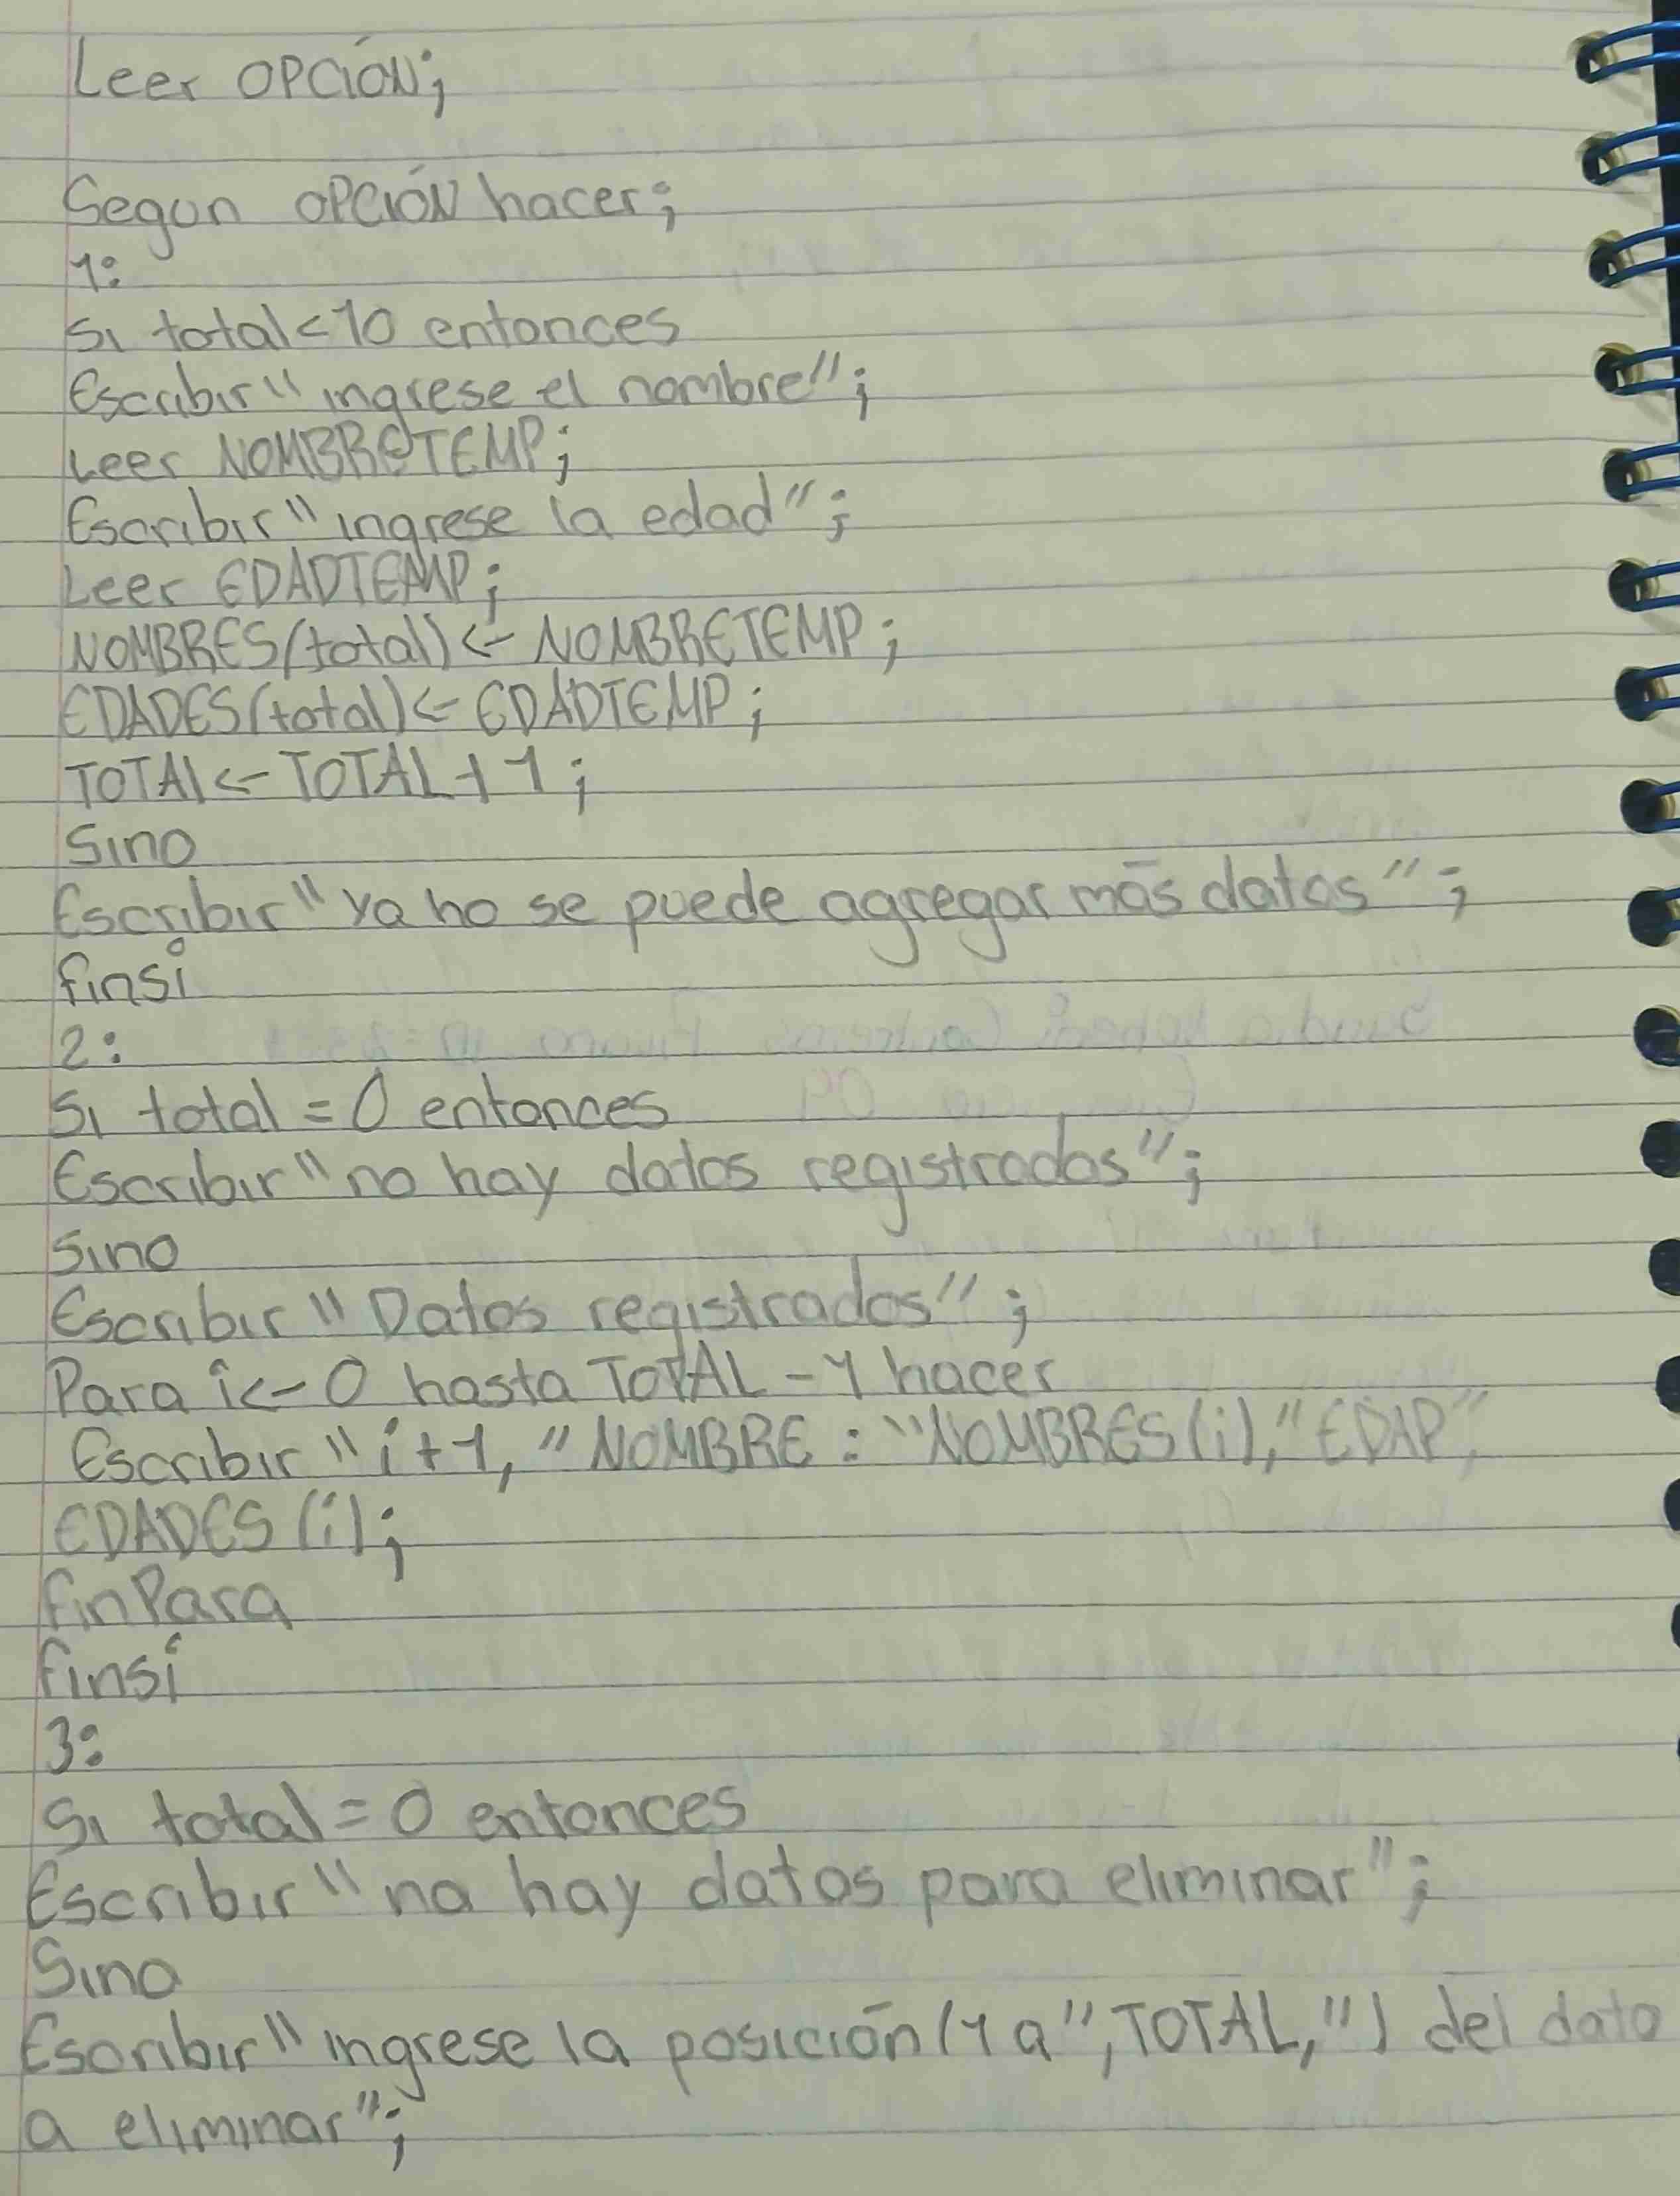 Leer OPCIÓN;
Segun OPCIÓN hacer;
1:
Si total<10 entonces
Escribir "ingrese el nombre";
Leer NOMBRETEMP;
Escribir "ingrese la edad";
Leer EDADTEMP;
NOMBRES(total)<-NOMBRETEMP;
EDADES(total)<-EDADTEMP;
TOTAl<-TOTAL+1;
Sino
Escribir "ya no se puede agregar más datos";
finsi
2:
Si total=0 entonces
Escribir "no hay datos registrados";
Sino
Escribir "Datos registrados";
Para i<-0 hasta TOTAL-1 hacer
Escribir "i+1, "NOMBRE: "NOMBRES(i), "EDAD",
EDADES(i);
finPara
finsi
3:
Si total=0 entonces
Escribir "no hay datos para eliminar";
Sino
Escribir "ingrese la posición(1a", TOTAL,") del dato
a eliminar";